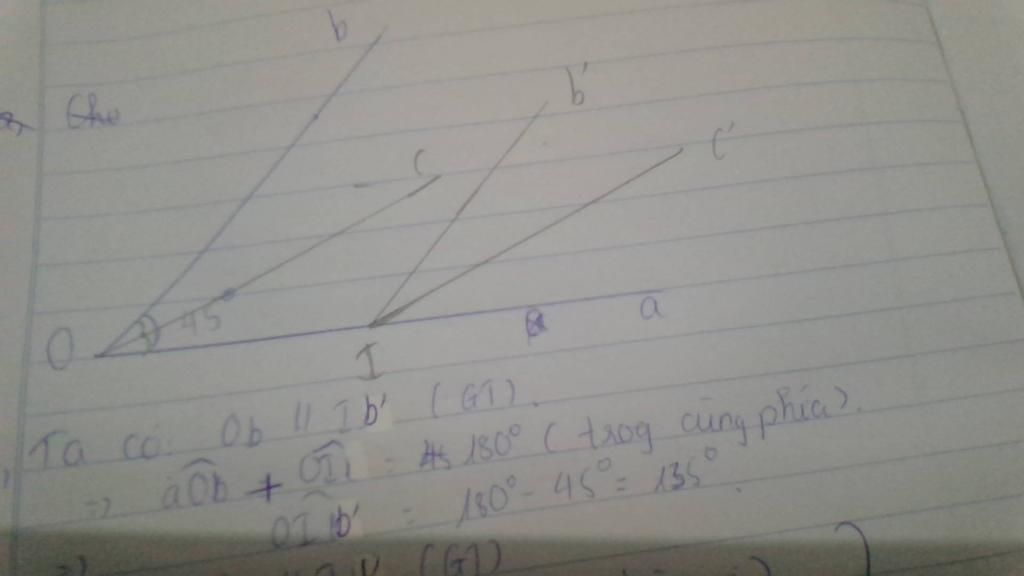 b
Cho
b'
c
c'
45
O
I
a
Ta có: Ob // Ib' (GT).
=> aOb + = 180° (trog cùng phía).
OIb' = 180° - 45° = 135°.
=> (GT)